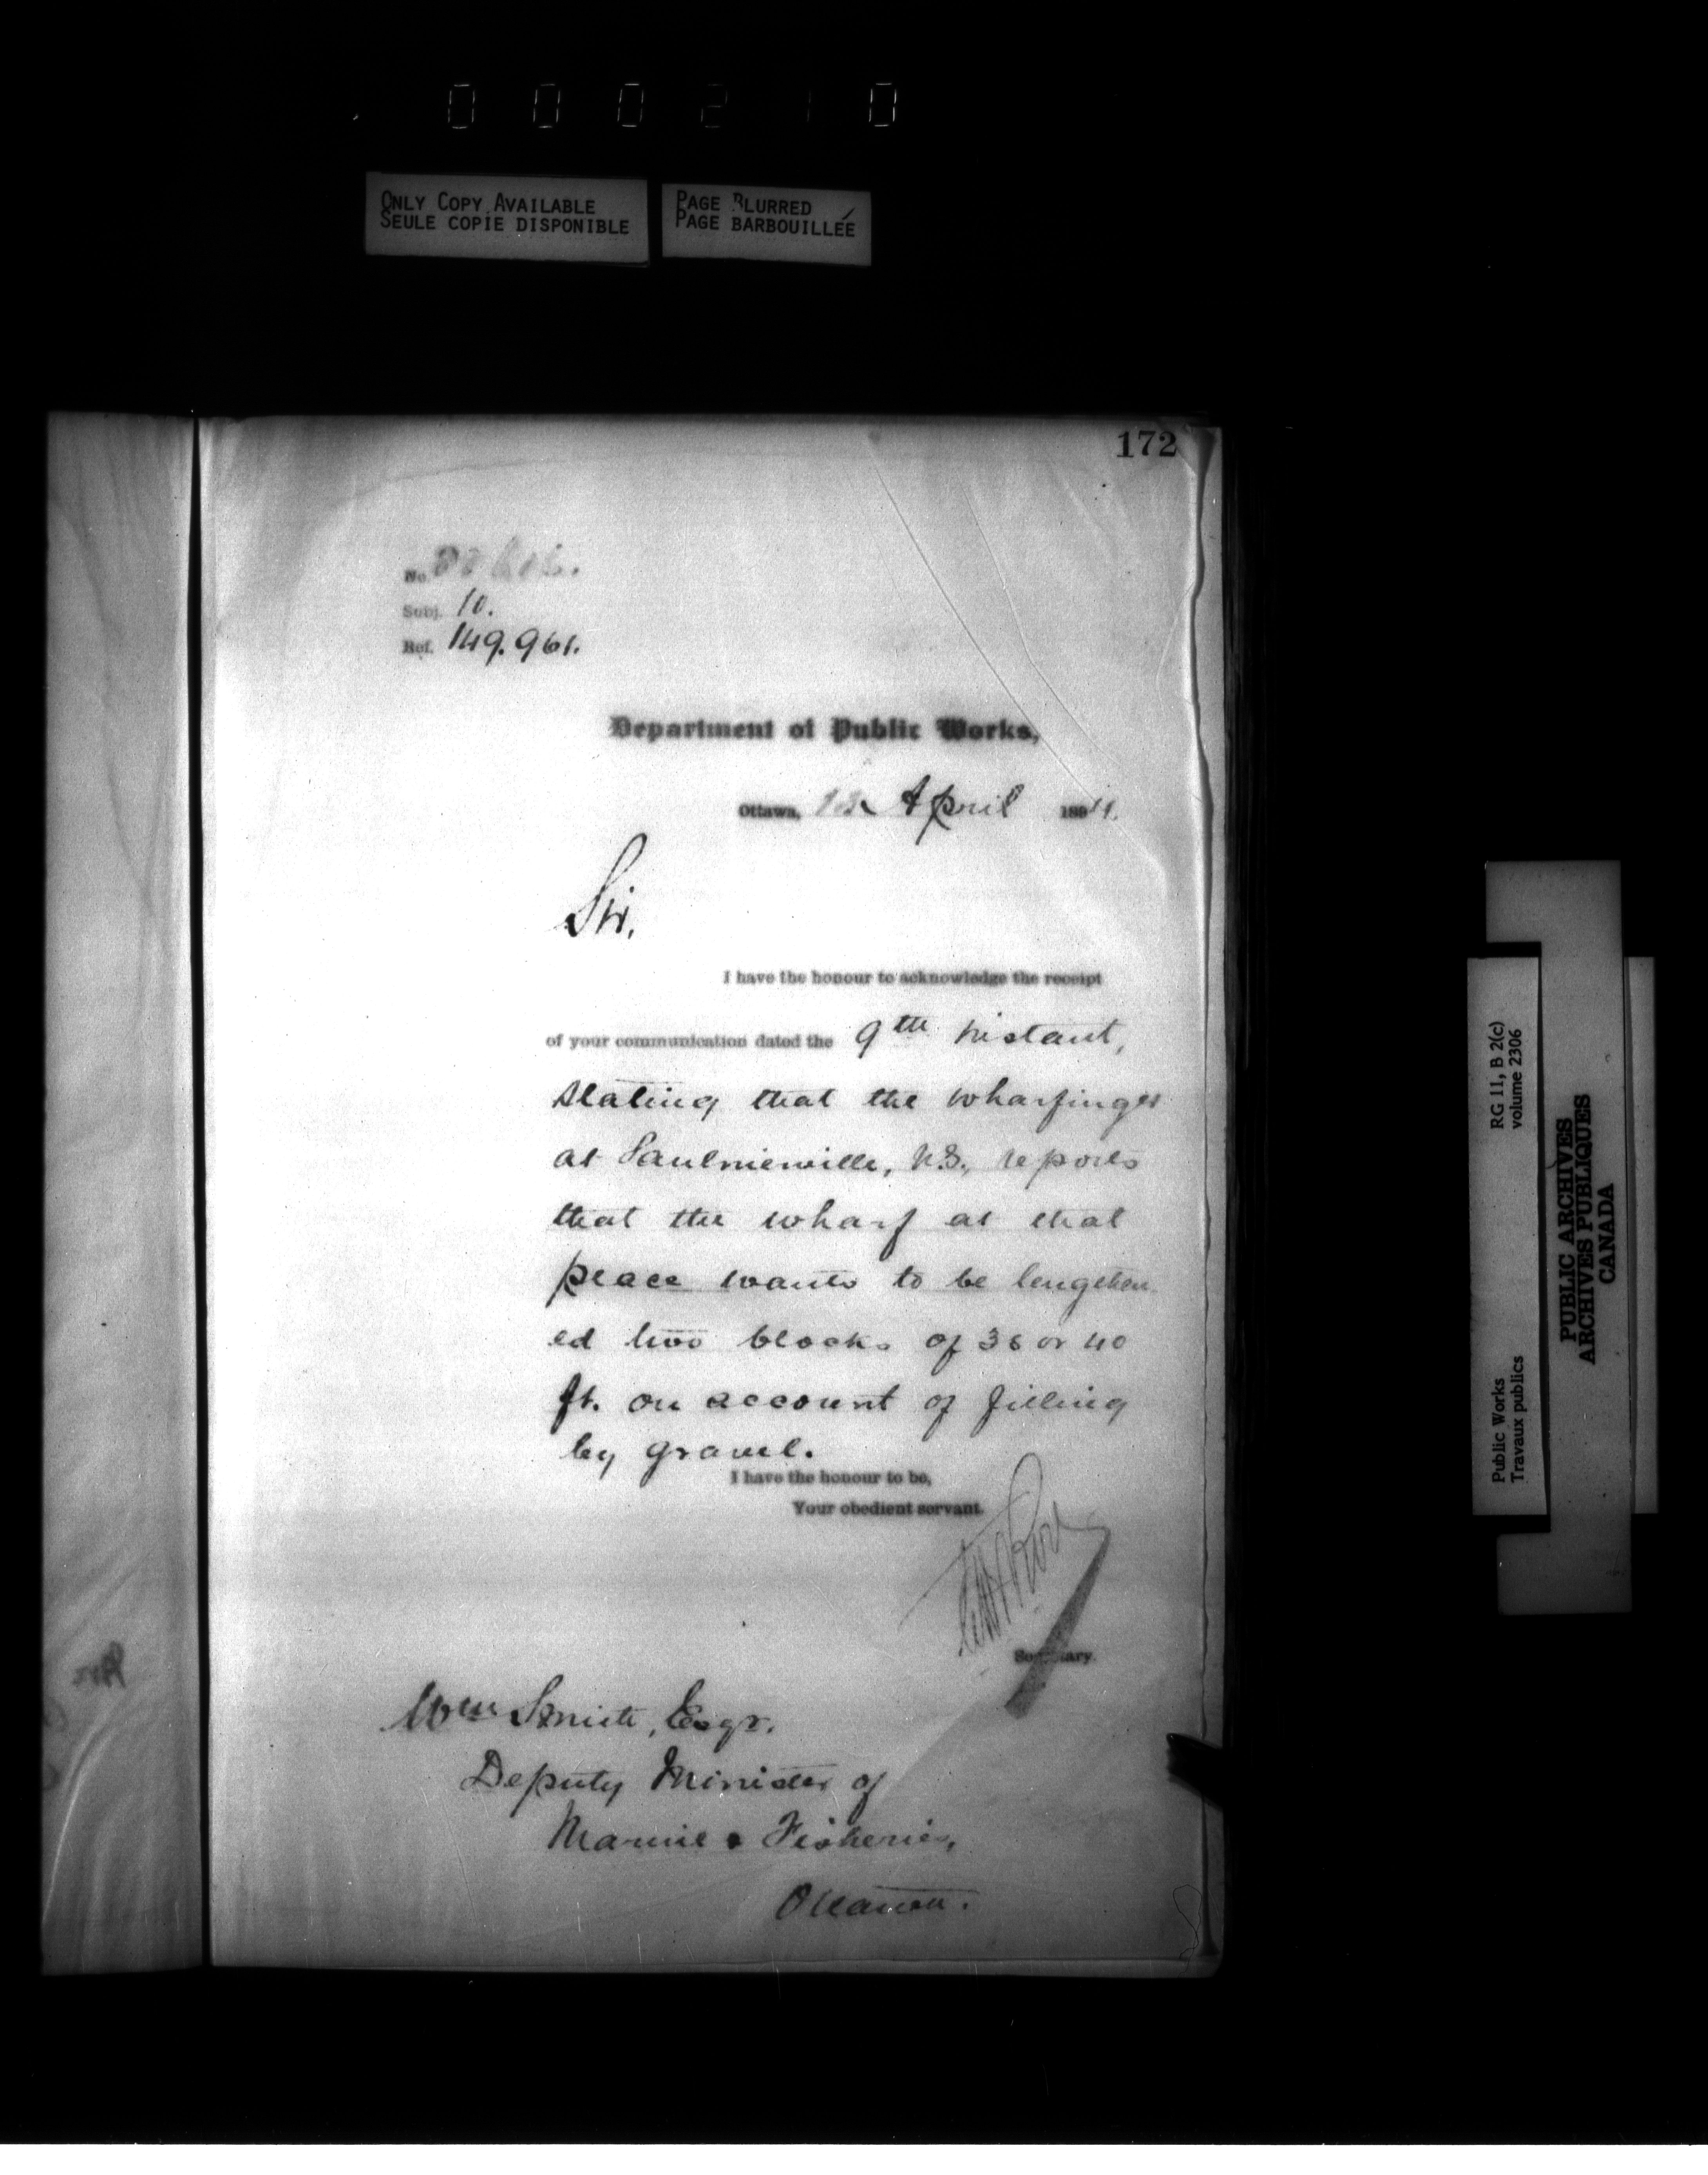 0 0 0 2 1 0
ONLY COPY AVAILABLE
SEULE COPIE DISPONIBLE
PAGE BLURRED
PAGE BARBOUILLÉE
172
No.
Subj. 10.
Ref. 149.961.
Department of Public Works,
Ottawa, April 1894.
Sir.
I have the honour to acknowledge the receipt
of your communication dated the 9th instant,
stating that the wharfinger
at Saulnierville, N.S., reports
that the wharf at that
place wants to be lengthen
ed two blocks of 36 or 40
ft. on account of filling
by gravel.
I have the honour to be,
Your obedient servant.
Secretary.
Wm Smith, Esqr.
Deputy Minister of
Marine & Fisheries,
Ottawa.
Public Works
Travaux publics
RG 11, B 2(c)
volume 2306
PUBLIC ARCHIVES
ARCHIVES PUBLIQUES
CANADA